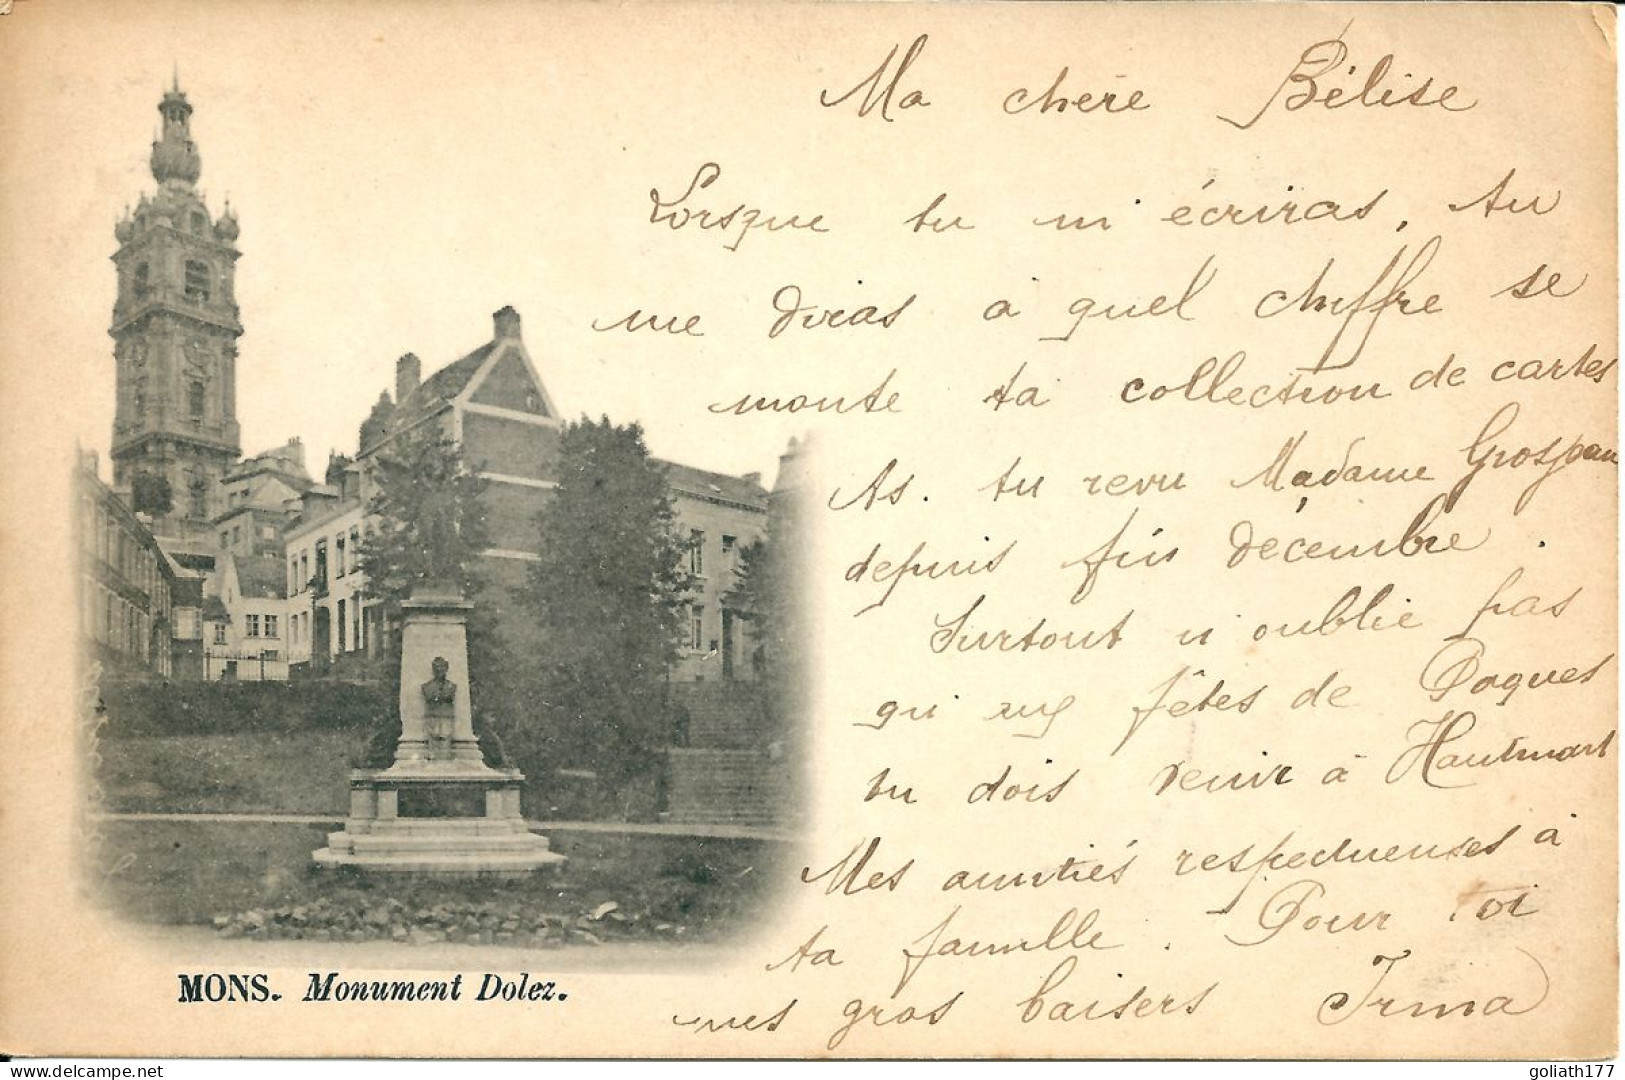 Ma chère Bélise
Lorsque tu m'écriras, tu
me diras à quel chiffre se
monte ta collection de cartes
As-tu revu Madame Grosjean
depuis fin décembre.
Surtout n'oublie pas
qu'aux fêtes de Paques
tu dois venir à Hautmart
Mes amitiés respectueuses à
ta famille. Pour toi
mes gros baisers Irma
MONS. Monument Dolez.
goliath177